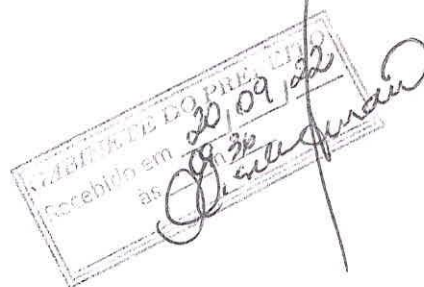 GABINETE DO PREFEITO
Recebido em 20/09/22
às 09:36